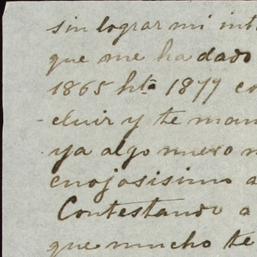 sin lograr mi int
que me ha dado
1865 hta 1877 co
cluir y te man
ya algo nuevo n
enojosisimo a
Contestando a
que mucho te